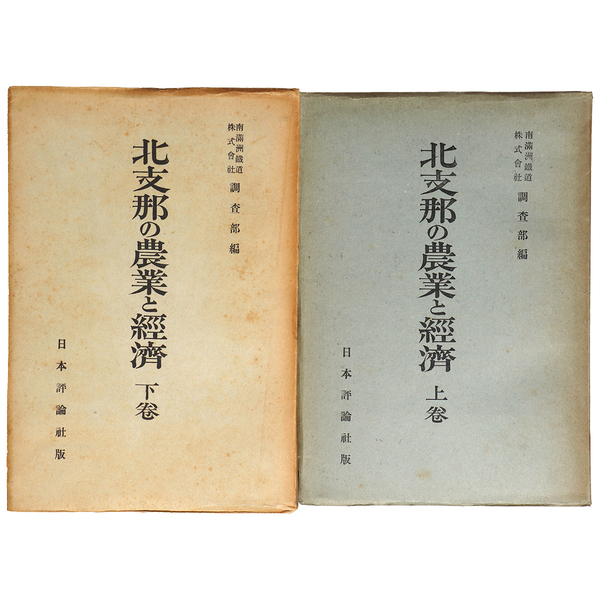 南滿洲鐵道
株式會社
調査部編
北支那の農業と經濟
上卷
日本評論社版
南滿洲鐵道
株式會社
調査部編
北支那の農業と經濟
下卷
日本評論社版